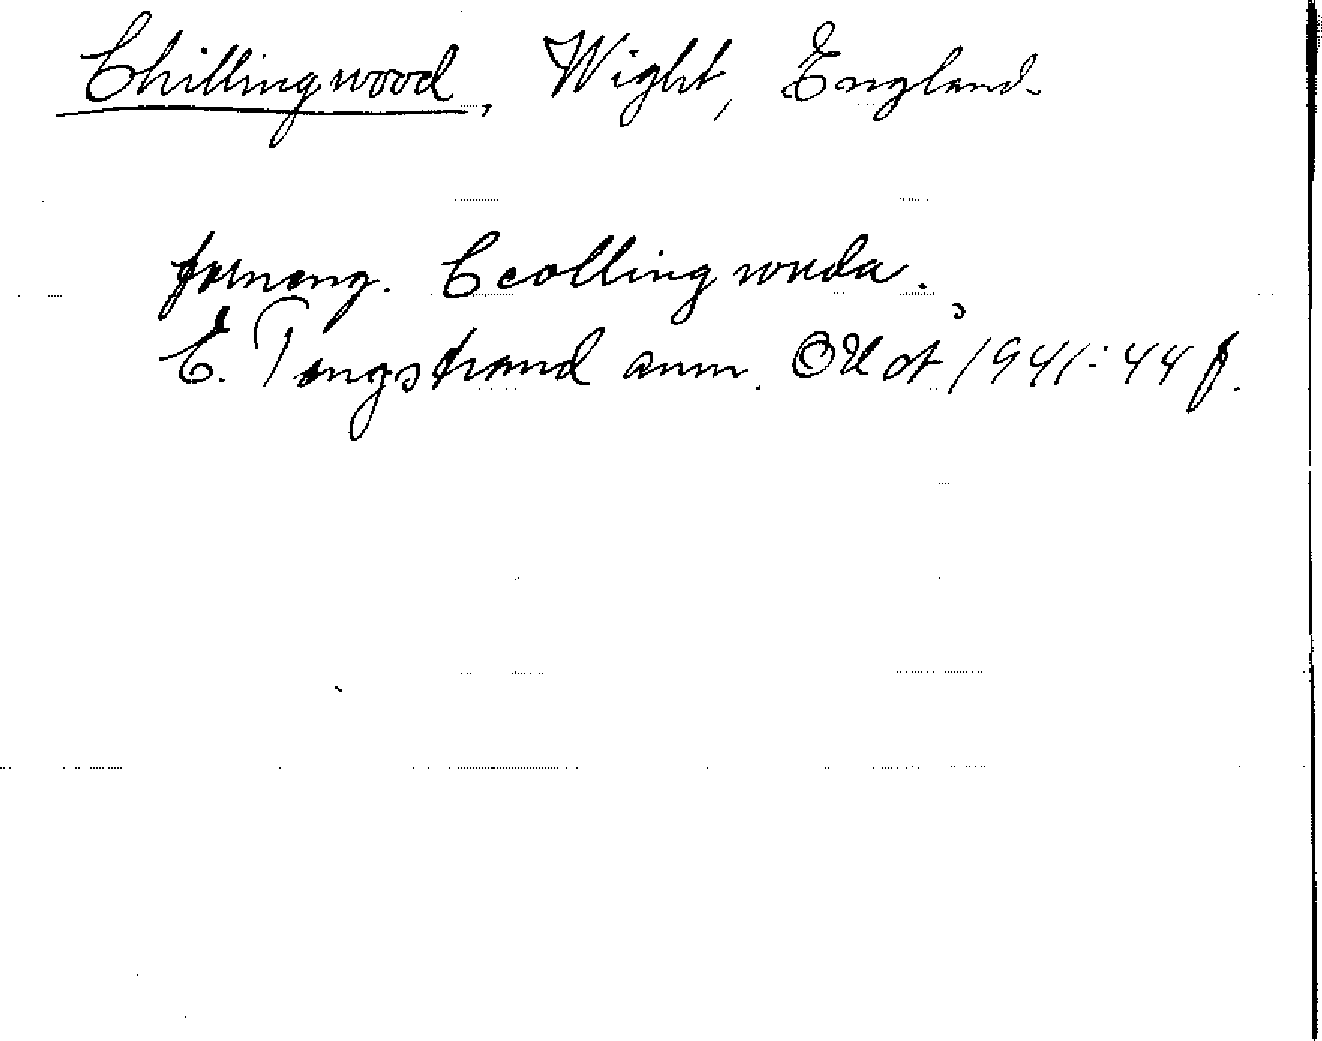 Chillingwood, Wight, England.
forneng. Ceolling wuda.
E. Tengstrand anm. OUÅ 1941:44 f.